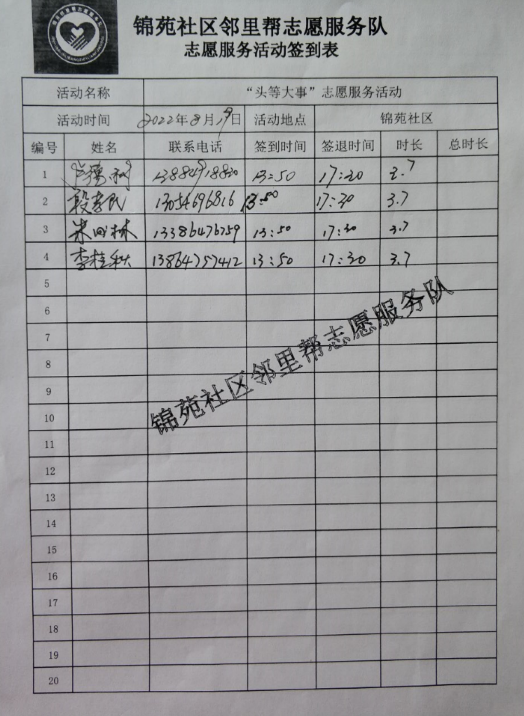 锦苑社区邻里帮志愿服务队
志愿服务活动签到表
活动名称 “头等大事”志愿服务活动
活动时间 2022年8月19日 活动地点 锦苑社区
编号 姓名 联系电话 签到时间 签退时间 时长 总时长
1 13:50 17:20 3.7
2 13:50 17:30 3.7
3 13386476759 13:50 17:30 3.7
4 李桂秋 13864757412 13:50 17:30 3.7
5
6
7
8
9
10
11
12
13
14
15
16
17
18
19
20
锦苑社区邻里帮志愿服务队